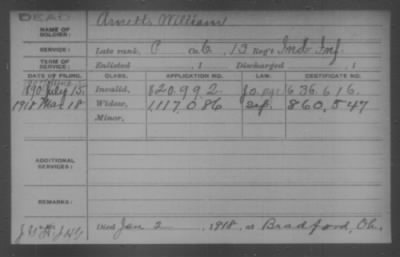 DEAD
NAME OF SOLDIER: Arnett William
SERVICE: Late rank, P Co. C, 13 Reg't Ind Inf.
TERM OF SERVICE: Enlisted , 1 Discharged , 1
DATE OF FILING. CLASS. APPLICATION NO. LAW. CERTIFICATE NO.
1890 July 15 Invalid, 820.992 636.616.
1918 Mar 18 Widow, 1117.086 860.547
Minor,
ADDITIONAL SERVICES:
REMARKS:
Died Jan 2, 1918, at Bradford, Oh.